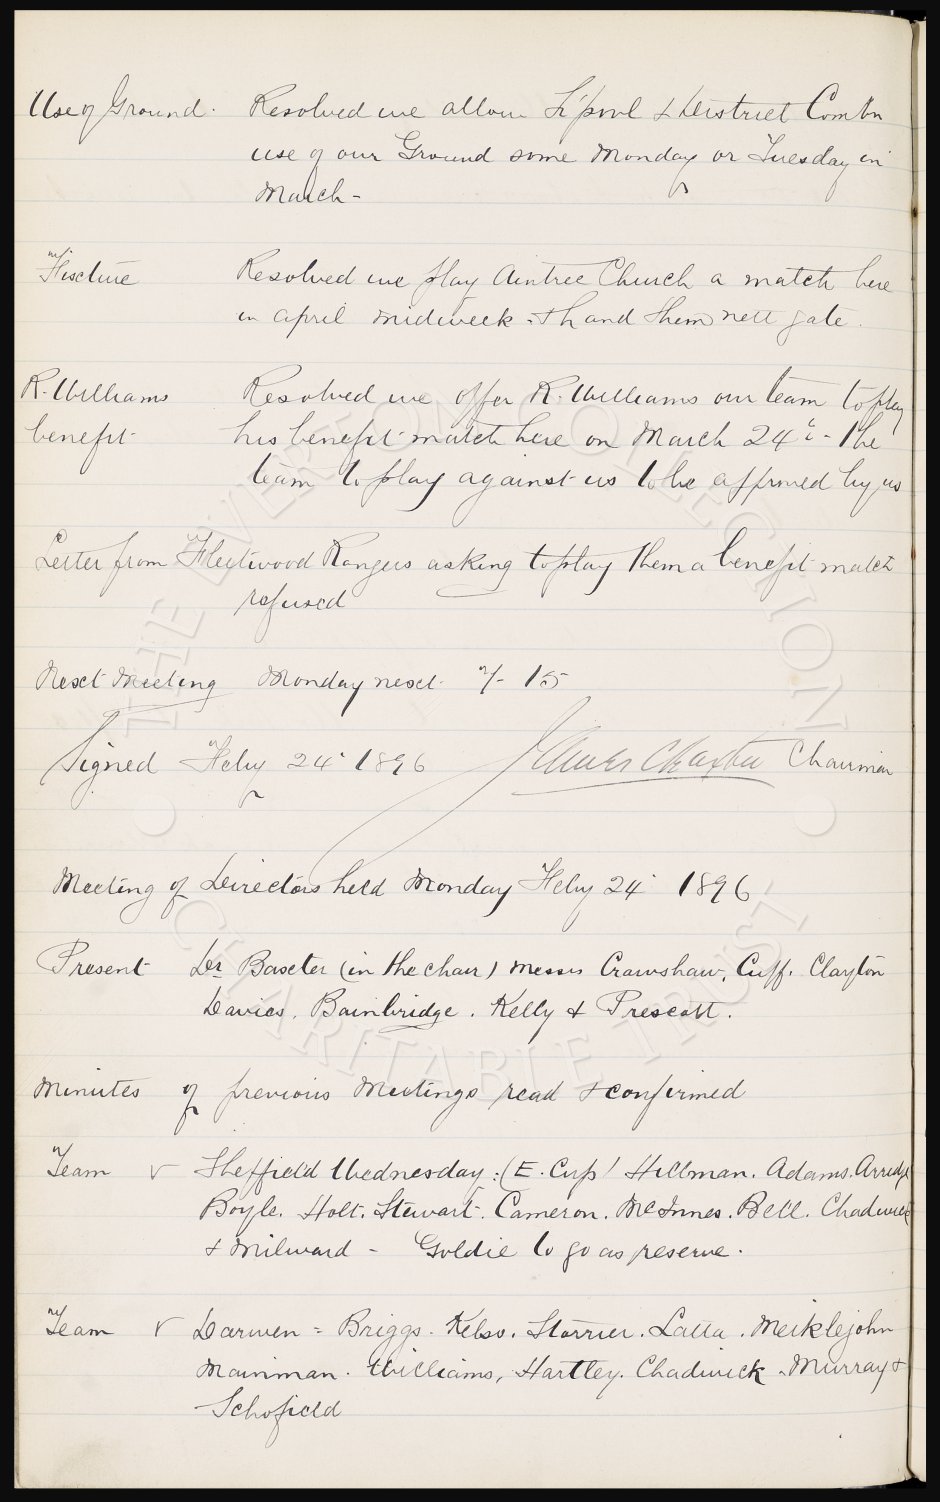 Use of Ground. Resolved we allow L'pool & District Combn
use of our Ground some Monday or Tuesday in
March -
Fixture Resolved we play Aintree Church a match here
in April midweek - & hand them nett gate.
R. Williams Resolved we offer R. Williams our team to play
benefit his benefit match here on March 24th - the
team to play against us to be approved by us
Letter from Fleetwood Rangers asking to play them a benefit match
refused
Next Meeting Monday next 7-15
Signed Feby 24 1896 James Baxter Chairman
Meeting of Directors held Monday Feby 24 1896
Present Dr Baxter (in the chair) Messrs Crawshaw, Cuff. Clayton
Davies. Bainbridge. Kelly & Prescott.
Minutes of previous Meetings read & confirmed
Team v Sheffield Wednesday: (E. Cup) Hillman. Adams. Arridge
Boyle. Holt. Stewart. Cameron. McInnes. Bell. Chadwick
& Milward - Goldie to go as reserve.
Team v Darwen = Briggs. Kelso. Storrier. Latta. Meiklejohn
Mainman. Williams, Hartley. Chadwick. Murray &
Schofield
• THE EVERTON COLLECTION •
CHARITABLE TRUST